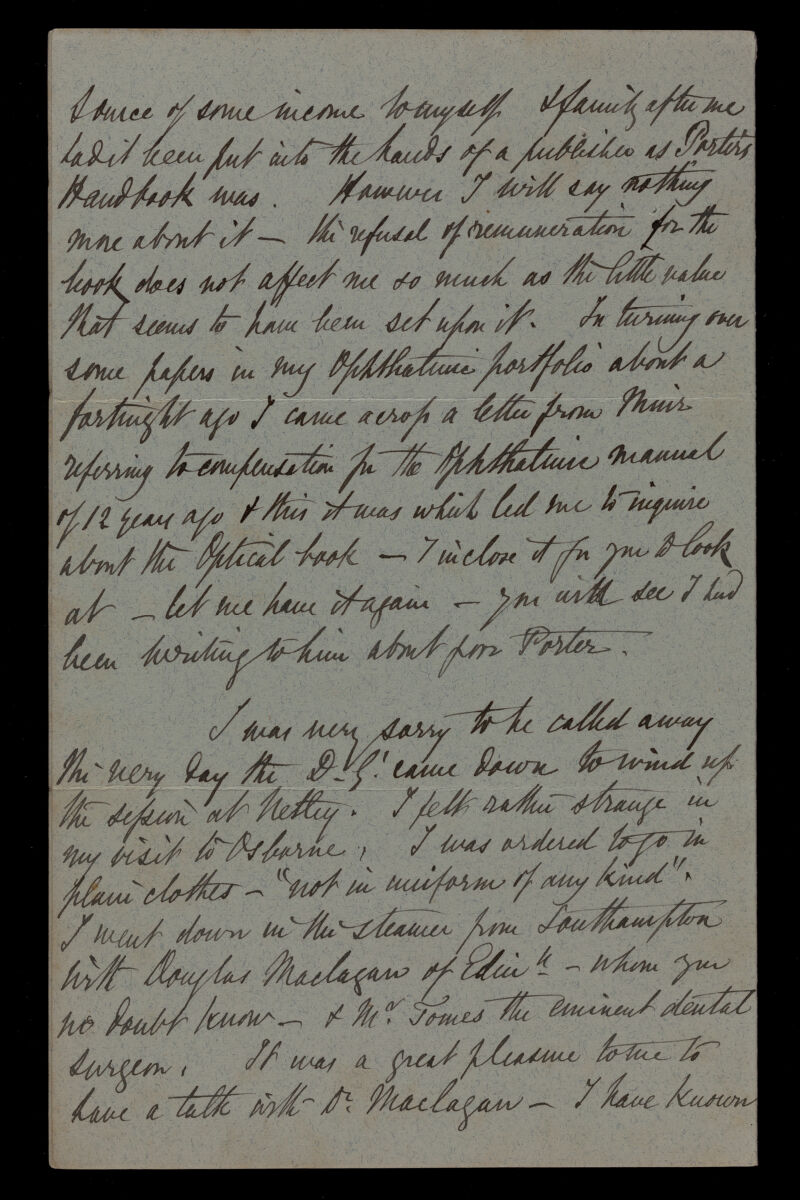 source of some income to myself & family after me
had it been put into the hands of a publisher as Porter's
Handbook was. However I will say nothing
more about it — the refusal of remuneration for the
book does not affect me so much as the little value
that seems to have been set upon it. In turning over
some papers in my Ophthalmic portfolio about a
fortnight ago I came across a letter from Muir
referring to compensation for the Ophthalmic manual
of 12 years ago & this it was which led me to inquire
about the Optical book — I inclose it for you to look
at — let me have it again — you will see I had
been writing to him about poor Porter.
I was very sorry to be called away
the very day the D-G! came down to wind up
the session at Netley. I felt rather strange in
my visit to Osborne, I was ordered to go in
plain clothes — "not in uniform of any kind".
I went down in the steamer from Southampton
with Douglas Maclagan of Edinh — whom you
no doubt know — & Mr. Tomes the eminent dental
surgeon. It was a great pleasure to me to
have a talk with Dr. Maclagan — I have known